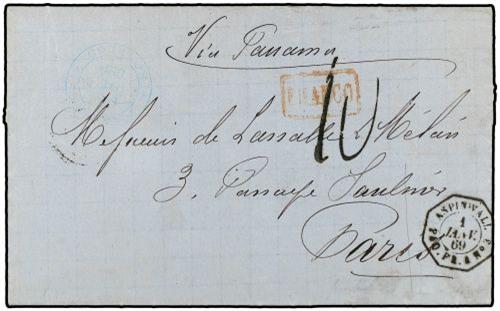 Via Panama
FRANCO
10
Messieurs de Lassalle & Mélan
3, Passage Saulnier
Paris
ASPINWALL
1
JANV.
69
PAQ. FR. A No